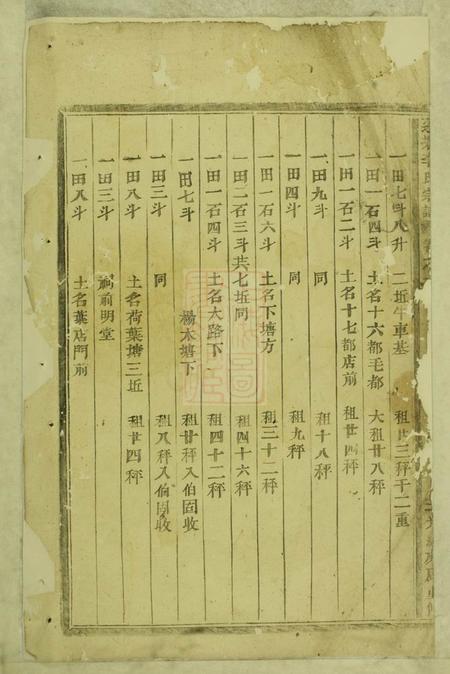 一田七斗八升 二坵牛車基 租廿三秤干二重
一田一石四斗 土名十六都毛都 大租廿八秤
一田一石二斗 土名十七都店前 租廿四秤
一田九斗 同 租十八秤
一田四斗 同 租九秤
一田一石六斗 土名下塘方 租三十二秤
一田二石三斗共七坵同 租四十六秤
一田一石四斗 土名大路下 租四十二秤
一田七斗 楊木塘下 租廿秤入伯固收
一田三斗 同 租八秤入伯固收
一田八斗 土名荷葉塘三坵 租廿四秤
一田三斗 祠前明堂
一田八斗 土名葉店門前